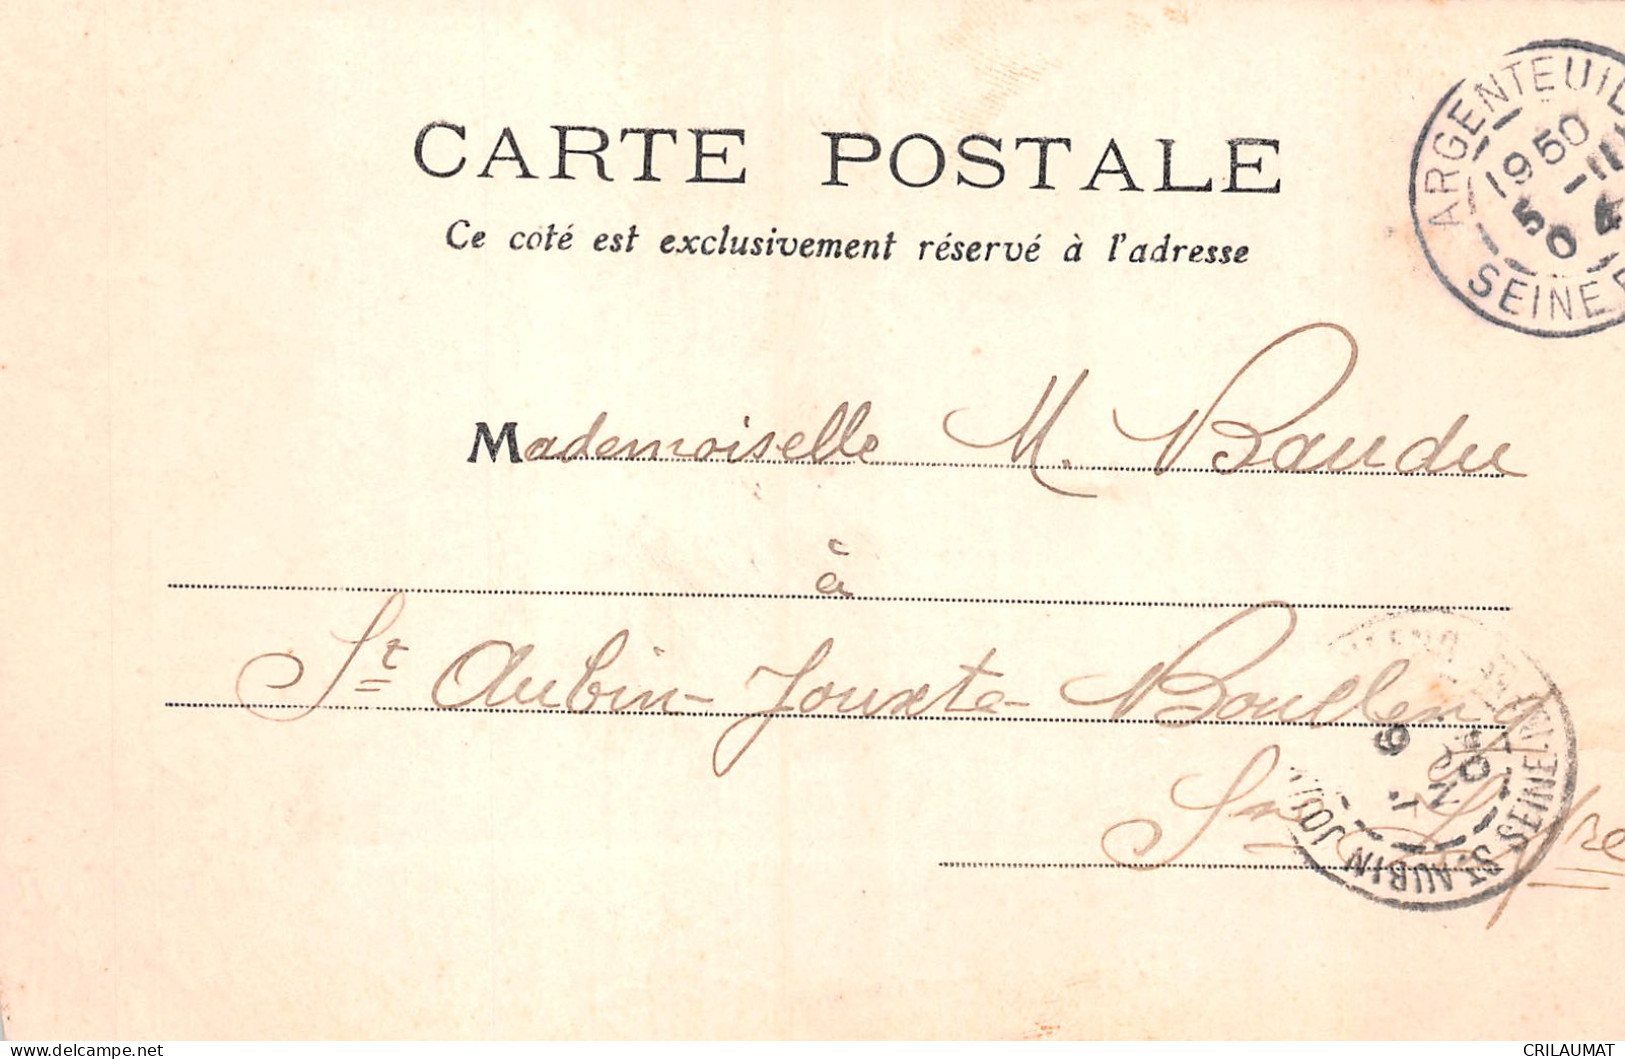 CARTE POSTALE
Ce côté est exclusivement réservé à l'adresse
ARGENTEUIL
1950
5 -11
04
SEINE
Mademoiselle M. Baudu
à
St Aubin-Jouxte-Boulleng
Sne Infre
ST AUBIN JOUX
6
NOV
04
SEINE-IN
CRILAUMAT